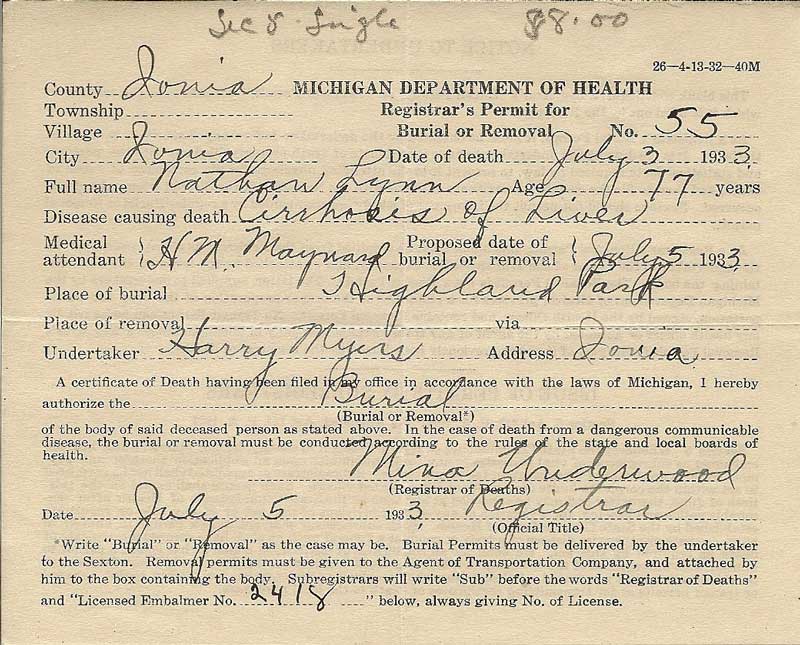 Sec 8 Single $8.00
26—4-13-32—40M
County Ionia MICHIGAN DEPARTMENT OF HEALTH
Township Registrar's Permit for
Village Burial or Removal No. 55
City Ionia Date of death July 3 1933
Full name Nathan Lynn Age 77 years
Disease causing death Cirrhosis of Liver
Medical attendant H M. Maynard Proposed date of burial or removal July 5 1933
Place of burial Highland Park
Place of removal via
Undertaker Harry Myers Address Ionia
A certificate of Death having been filed in my office in accordance with the laws of Michigan, I hereby
authorize the Burial
(Burial or Removal*)
of the body of said deceased person as stated above. In the case of death from a dangerous communicable
disease, the burial or removal must be conducted according to the rules of the state and local boards of
health.
Mina Underwood
(Registrar of Deaths)
Date July 5 1933 Registrar
(Official Title)
*Write "Burial" or "Removal" as the case may be. Burial Permits must be delivered by the undertaker
to the Sexton. Removal permits must be given to the Agent of Transportation Company, and attached by
him to the box containing the body. Subregistrars will write "Sub" before the words "Registrar of Deaths"
and "Licensed Embalmer No. 2418 " below, always giving No. of License.